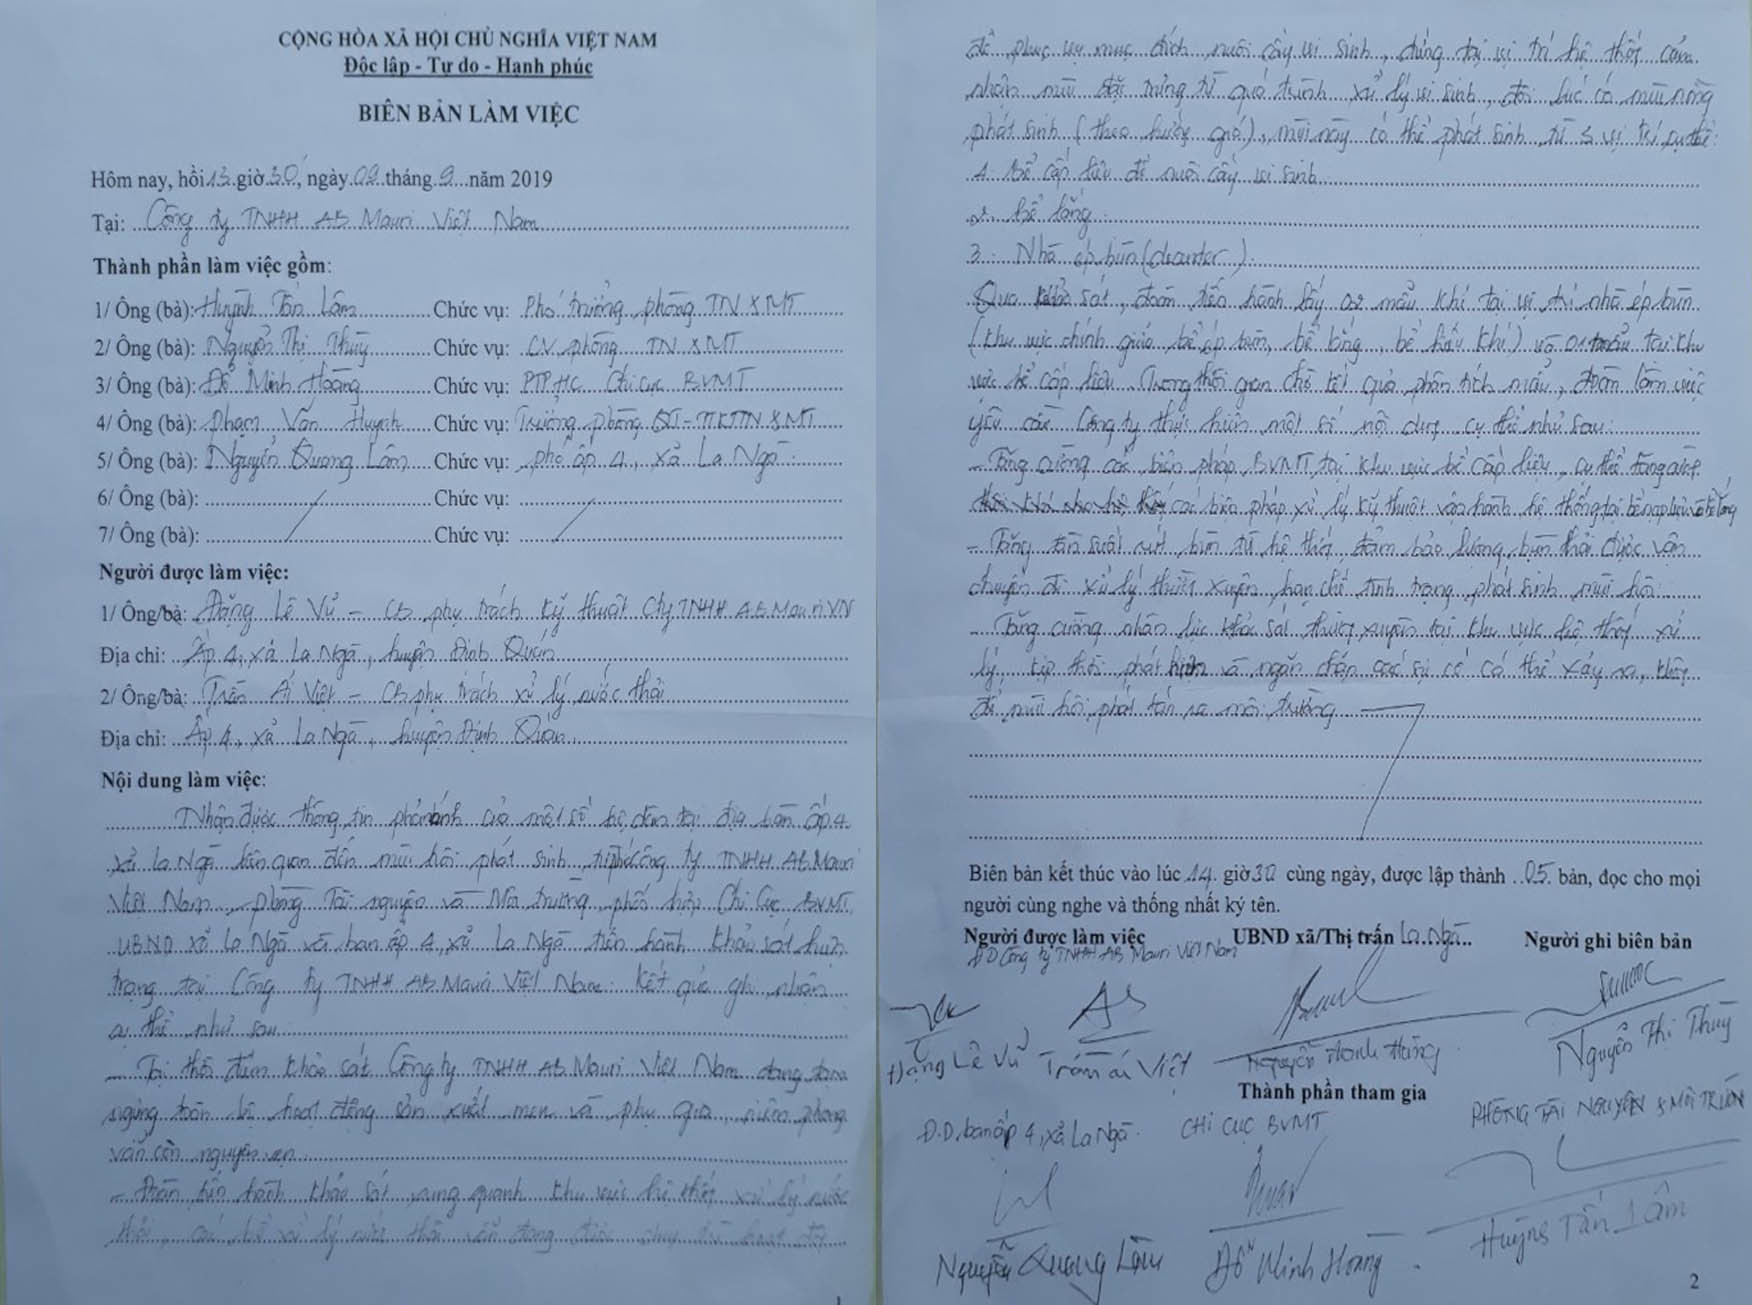 CỘNG HÒA XÃ HỘI CHỦ NGHĨA VIỆT NAM
Độc lập - Tự do - Hạnh phúc
BIÊN BẢN LÀM VIỆC
Hôm nay, hồi 13 giờ 30, ngày 09 tháng 9 năm 2019
Tại: Công ty TNHH AB Mauri Việt Nam
Thành phần làm việc gồm:
1/ Ông (bà): Huỳnh Tấn Lâm Chức vụ: Phó trưởng phòng TN & MT
2/ Ông (bà): Nguyễn Thị Thùy Chức vụ: CV phòng TN & MT
3/ Ông (bà): Đỗ Minh Hoàng Chức vụ: PTP.HC Chi cục BVMT
4/ Ông (bà): Phạm Văn Huynh Chức vụ: Trưởng phòng QT-TTKTTN & MT
5/ Ông (bà): Nguyễn Quang Lâm Chức vụ: phó ấp 4, xã La Ngà.
6/ Ông (bà): Chức vụ:
7/ Ông (bà): Chức vụ:
Người được làm việc:
1/ Ông/bà: Đặng Lê Vũ - CB phụ trách kỹ thuật Cty TNHH AB Mauri VN
Địa chỉ: Ấp 4, xã La Ngà, huyện Định Quán
2/ Ông/bà: Trần Ái Việt - CB phụ trách xử lý nước thải
Địa chỉ: Ấp 4, xã La Ngà, huyện Định Quán.
Nội dung làm việc:
Nhận được thông tin phản ánh của một số hộ dân tại địa bàn ấp 4
xã La Ngà liên quan đến mùi hôi phát sinh từ phía Công ty TNHH AB Mauri
Việt Nam, phòng Tài nguyên và Môi trường phối hợp Chi Cục BVMT,
UBND xã La Ngà và ban ấp 4, xã La Ngà tiến hành khảo sát hiện
trạng tại Công ty TNHH AB Mauri Việt Nam. Kết quả ghi nhận
cụ thể như sau:
- Tại thời điểm khảo sát Công ty TNHH AB Mauri Việt Nam đang tạm
ngừng toàn bộ hoạt động sản xuất men và phụ gia, niêm phong
vẫn còn nguyên vẹn.
- Đoàn tiến hành khảo sát xung quanh khu vực hệ thống xử lý nước
thải, các bể xử lý nước thải vẫn đang được duy trì hoạt động
1
để phục vụ mục đích nuôi cấy vi sinh, đứng tại vị trí hệ thống cảm
nhận mùi đặc trưng từ quá trình xử lý vi sinh, đôi lúc có mùi nồng
phát sinh (theo hướng gió), mùi này có thể phát sinh từ 3 vị trí cụ thể:
1. Bể cấp liệu để nuôi cấy vi sinh.
2. Bể lắng.
3. Nhà ép bùn (decanter).
Qua khảo sát, đoàn tiến hành lấy 02 mẫu khí tại vị trí nhà ép bùn
(khu vực chính giữa bể ép bùn, bể lắng, bể hiếu khí) và 01 mẫu tại khu
vực bể cấp liệu. Trong thời gian chờ kết quả phân tích mẫu, đoàn làm việc
yêu cầu Công ty thực hiện một số nội dung cụ thể như sau:
- Tăng cường các biện pháp BVMT tại khu vực bể cấp liệu, cụ thể tăng cường
các biện pháp xử lý kỹ thuật vận hành hệ thống tại bể nạp liệu và bể lắng
- Tăng tần suất rút bùn từ hệ thống, đảm bảo lượng bùn thải được vận
chuyển đi xử lý thường xuyên, hạn chế tình trạng phát sinh mùi hôi.
- Tăng cường nhân lực khảo sát thường xuyên tại khu vực hệ thống xử
lý, kịp thời phát hiện và ngăn chặn các sự cố có thể xảy ra, không
để mùi hôi phát tán ra môi trường
Biên bản kết thúc vào lúc 14 giờ 30 cùng ngày, được lập thành 05 bản, đọc cho mọi
người cùng nghe và thống nhất ký tên.
Người được làm việc UBND xã/Thị trấn La Ngà Người ghi biên bản
ĐD Công ty TNHH AB Mauri Việt Nam
Đặng Lê Vũ Trần Ái Việt Nguyễn Thanh Hùng Nguyễn Thị Thùy
Thành phần tham gia
Đ.D. ban ấp 4, xã La Ngà. CHI CỤC BVMT PHÒNG TÀI NGUYÊN & MÔI TRƯỜNG
Nguyễn Quang Lâm Đỗ Minh Hoàng Huỳnh Tấn Lâm
2